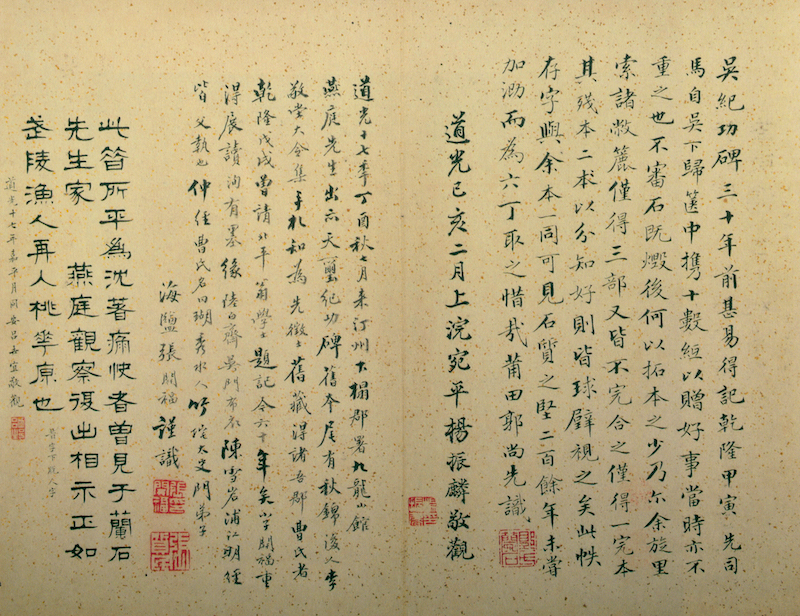 吳紀功碑三十年前甚易得記乾隆甲寅先司
馬自吳下歸篋中攜十數紙以贈好事當時亦不
重之也不審石既燬後何以拓本之少乃尓余旋里
索諸敝簏僅得三部又皆不完合之僅得一完本
其殘本二本以分知好則皆球璧視之矣此帙
存字與余本一同可見石質之堅二百餘年未嘗
加泐而為六丁取之惜哉莆田郭尚先識
道光己亥二月上浣宛平楊振麟敬觀
道光十七年丁酉秋七月來汀州下榻郡署九龍山館
燕庭先生出示天璽紀功碑舊本尾有秋錦後人李
敬堂大令集手札知為先徵士舊藏得諸吾郡曹氏者
乾隆戊戌曾請北平翁學士題記今六十年矣開福重
得展讀洵有墨緣陸白齋吳門布衣陳雪岩浦江明經
皆父執也仲經曹氏名曰瑚秀水人竹垞太史門弟子
海鹽張開福謹識
此笤所平為沈著痛快者曾見于蘭石
先生家燕庭觀察復出相示正如
武陵漁人再入桃華原也
道光十七年嘉平月同安呂世宜敬觀